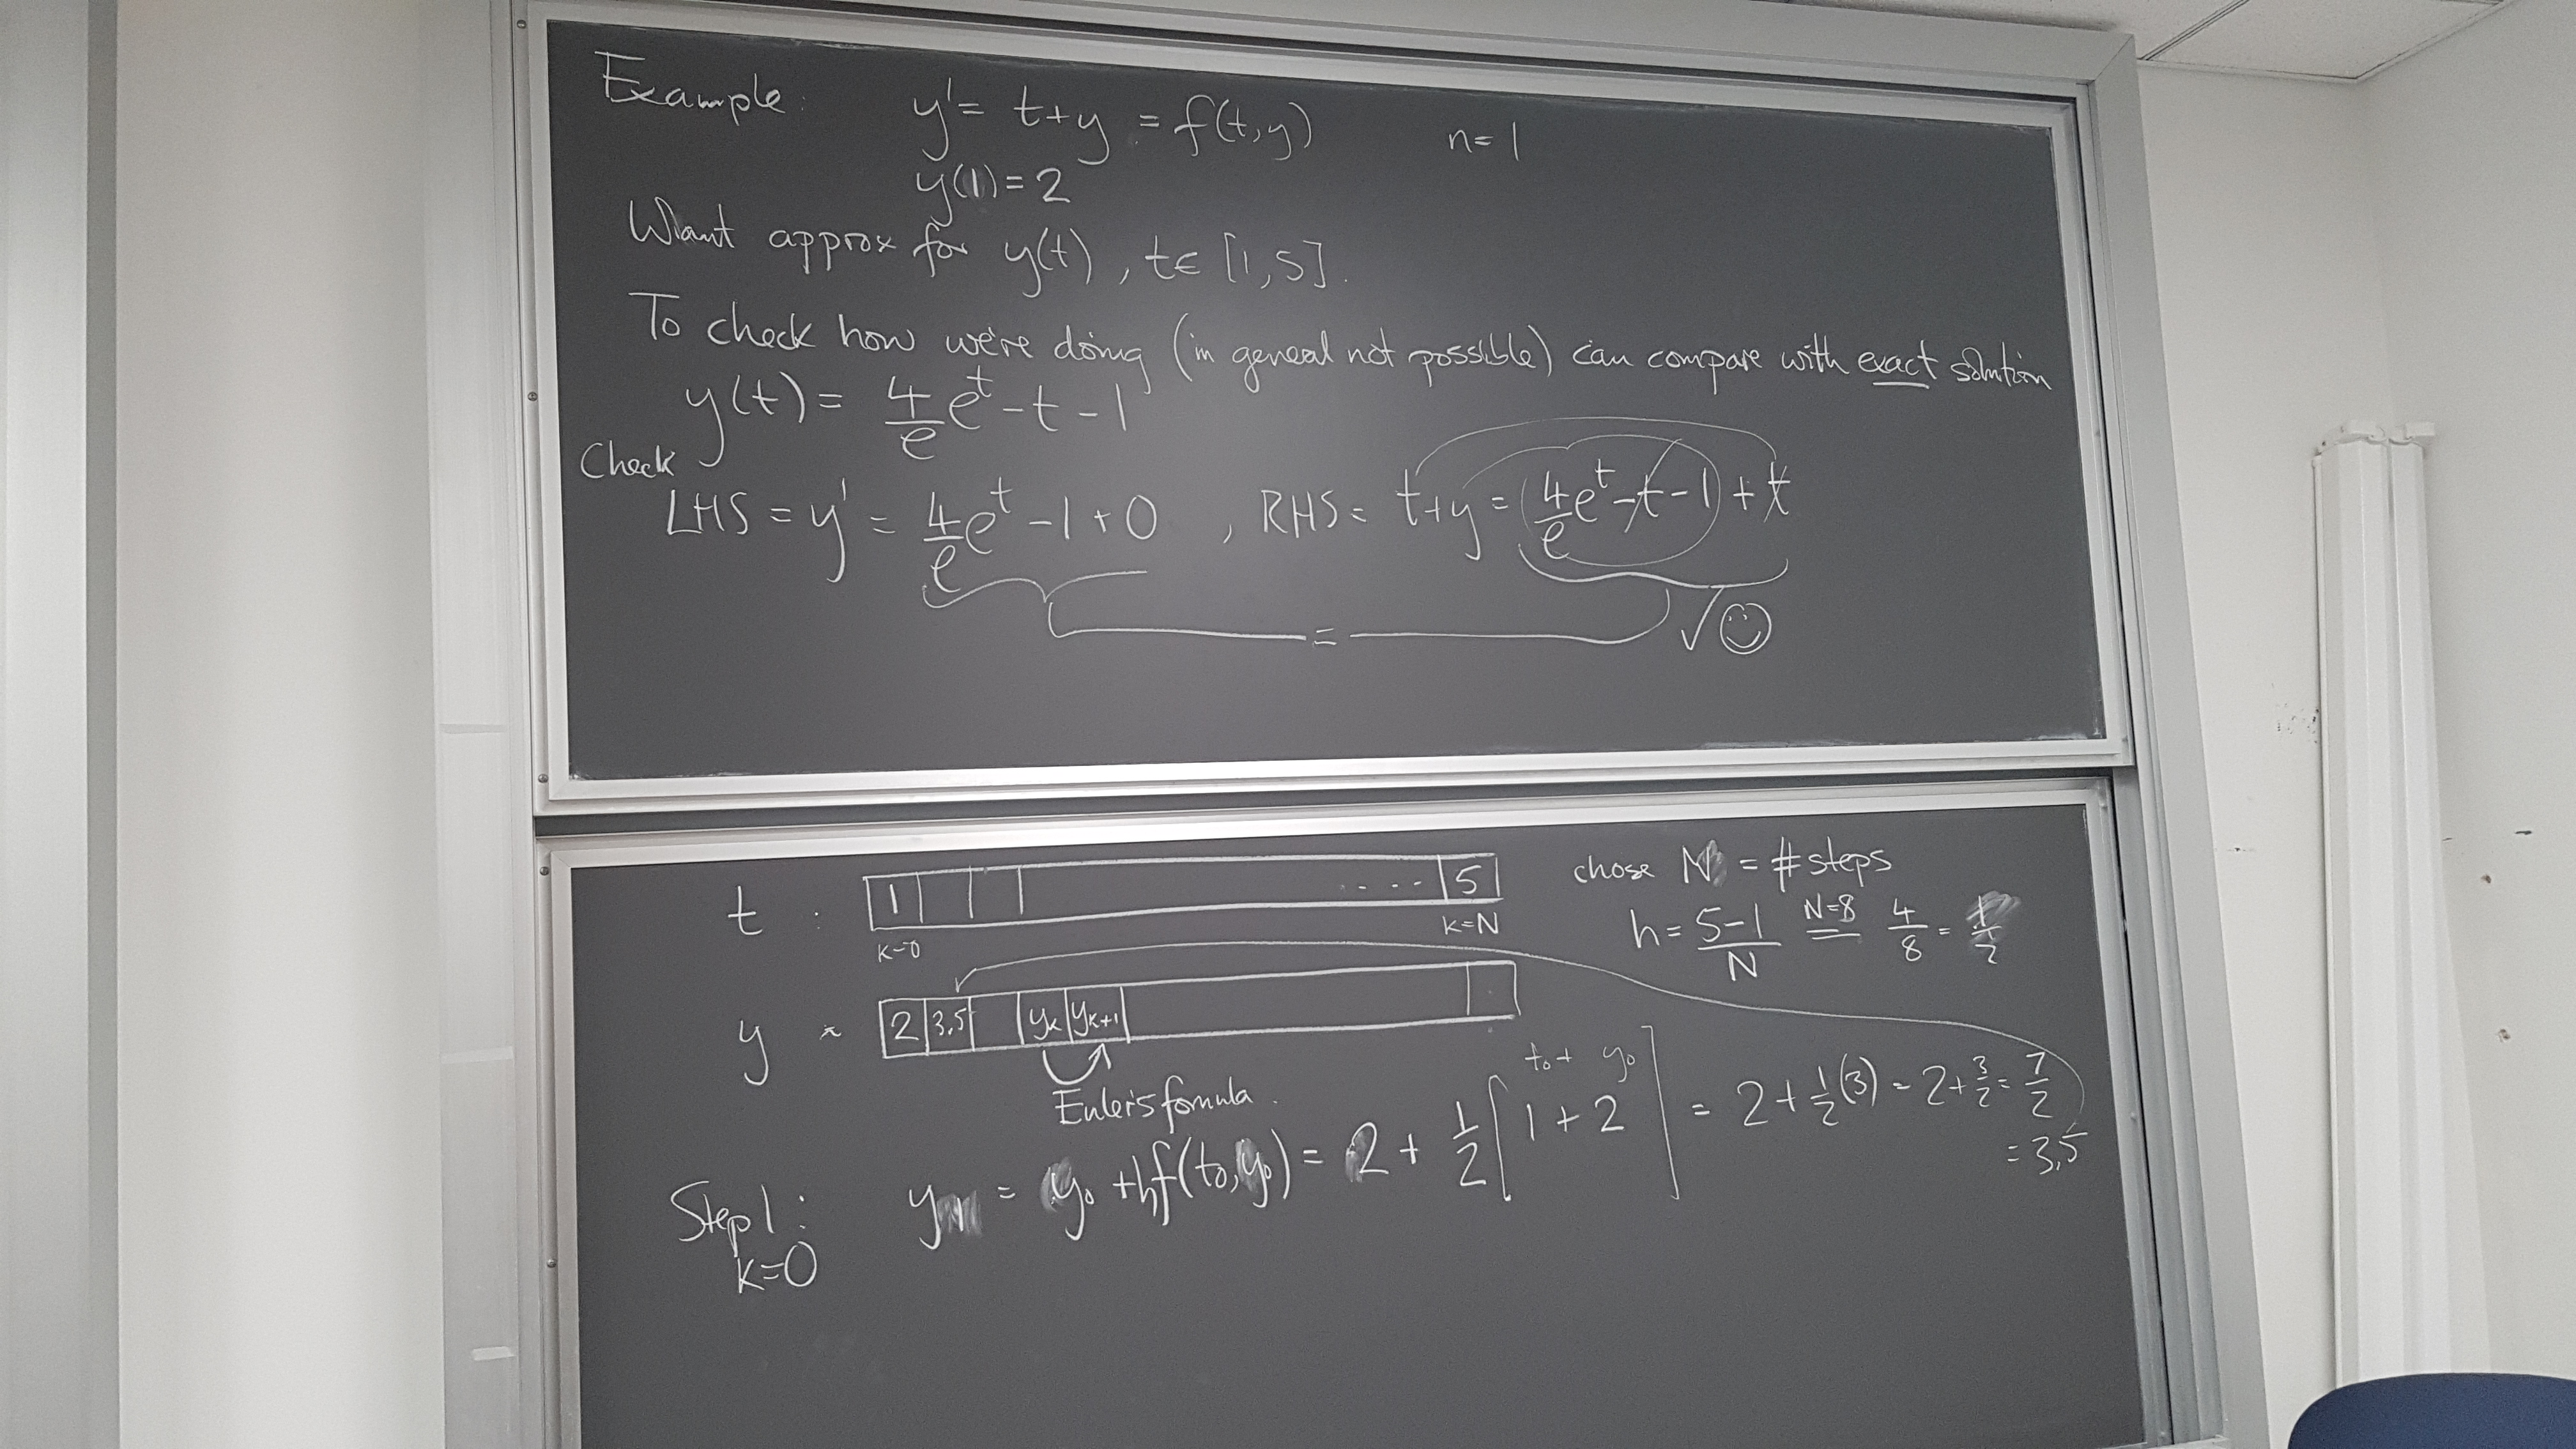 Example: y' = t+y = f(t,y) n=1
y(1)=2
Want approx for y(t), t∈ [1,5].
To check how we're doing (in geneal not possible) can compare with exact solution
y(t) = 4/e e^t - t - 1
Check
LHS = y' = 4/e e^t - 1 + 0 , RHS = t+y = (4/e e^t - t - 1) + t
= √ ☺
t : 1 .... 5
k=0 k=N
chose N = # steps
h = (5-1)/N N=8 = 4/8 = 1/2
y ~ 2 3.5 yk yk+1
Euler's fomula.
t0 + y0
Step 1: y1 = y0 + hf(t0,y0) = 2 + 1/2 [1+2] = 2 + 1/2 (3) = 2 + 3/2 = 7/2
= 3.5
k=0